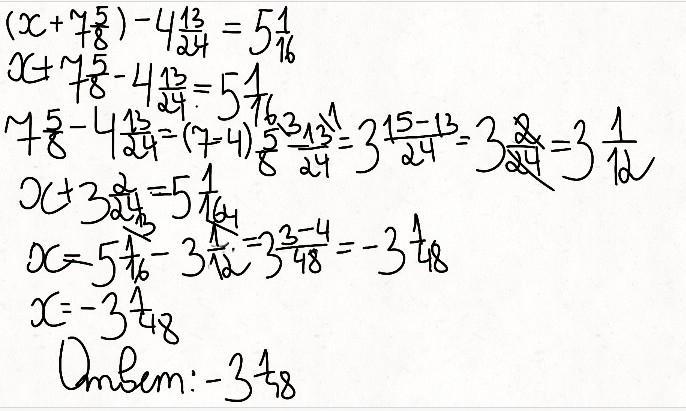 (x + 7 5/8) - 4 13/24 = 5 1/16
x + 7 5/8 - 4 13/24 = 5 1/16
7 5/8 - 4 13/24 = (7-4) 5/8 \3 - 13/24 \1 = 3 15-13/24 = 3 2/24 = 3 1/12
x + 3 2/24 = 5 1/16
x = 5 1/16 \3 - 3 1/12 \4 = 3 3-4/48 = -3 1/48
x = -3 1/48
Ответ: -3 1/48